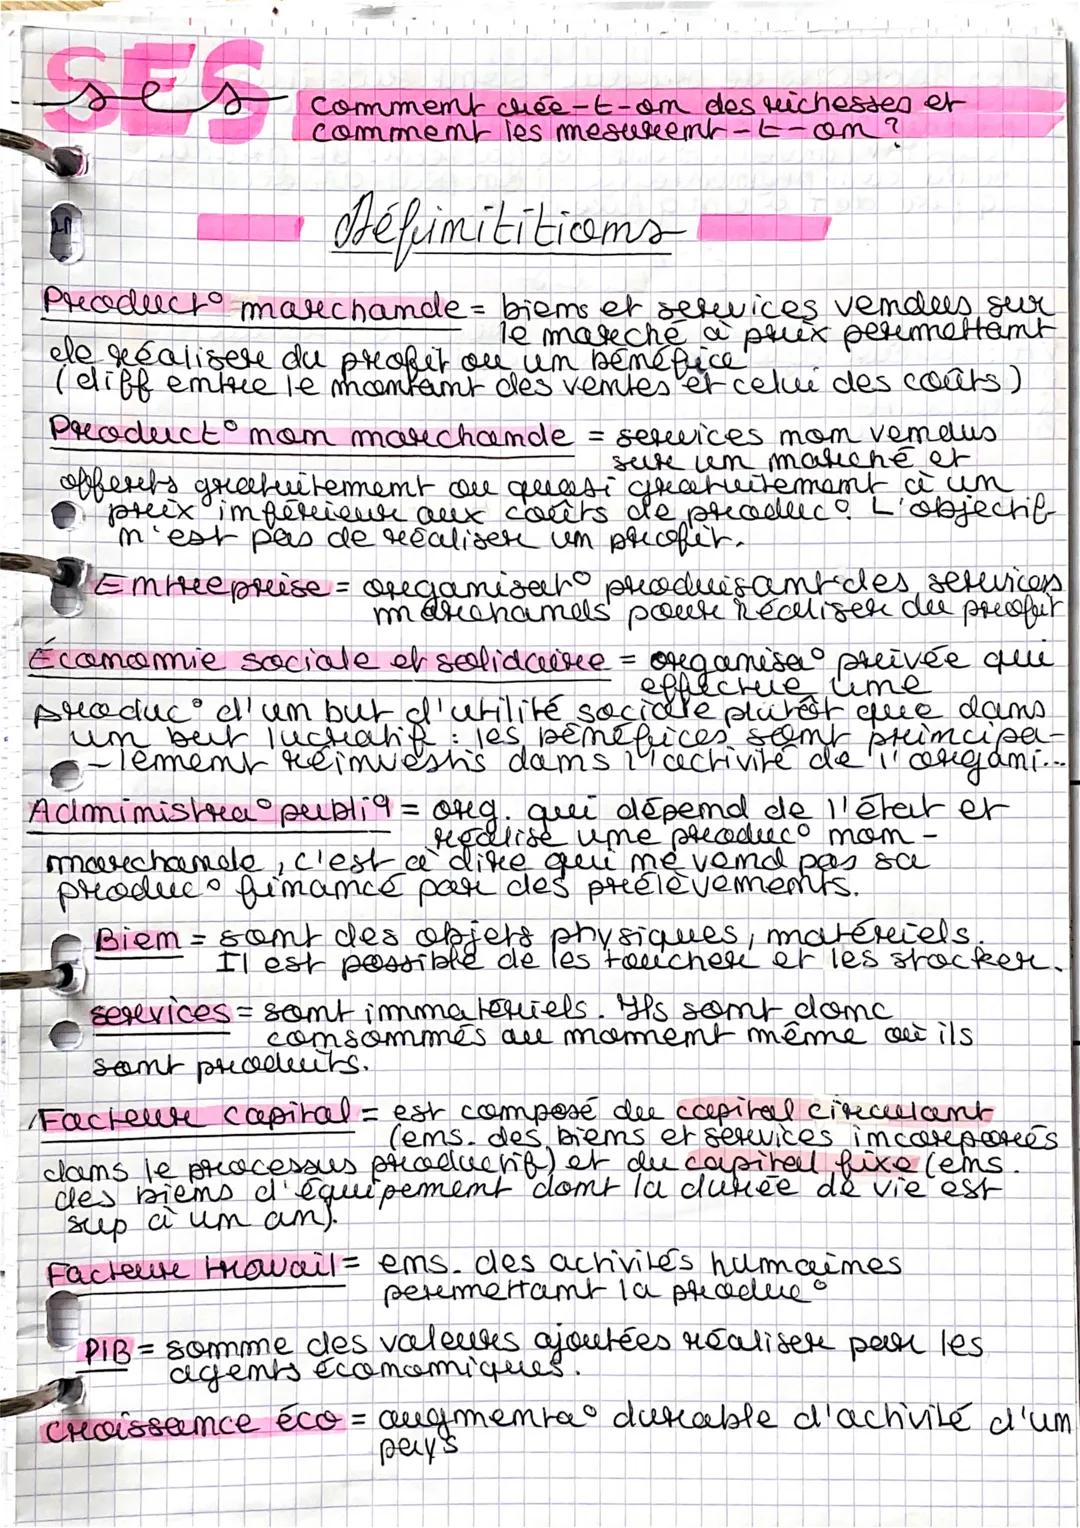 SES
ses
Comment crée-t-on des richesses et
comment les mesurent-t-on ?
Définititions
Product° marchande = biens et services vendues sur
le marché à prix permettant
de réaliser du profit ou un bénéfice
(diff entre le montant des ventes et celui des coûts)
Product° non marchande = services non vendus
sur un marché et
offerts gratuitement ou quasi gratuitement à un
prix inférieur aux coûts de produc°. L'objectif
n'est pas de réaliser un profit.
Entreprise = organisat° produisant des services
marchands pour réaliser du profit
Économie sociale et solidaire = organisa° privée qui
effectue une
produc° d'un but d'utilité sociale plutôt que dans
un but lucratif : les bénéfices sont principa-
-lement réinvestis dans l'activité de l'organi...
Administra° publiq = org. qui dépend de l'état et
réalise une produc° non-
marchande, c'est à dire qui ne vend pas sa
produc° financé par des prélèvements.
Bien = sont des objets physiques, matériels.
Il est possible de les toucher et les stocker.
services = sont immatériels. Ils sont donc
consommés au moment même où ils
sont produits.
Facteur capital = est composé du capital circulant
(ems. des biens et services incorporés
dans le processus productif) et du capital fixe (ems.
des biens d'équipement dont la durée de vie est
sup à un an).
Facteur travail = ems. des activités humaines
permettant la produc°
PIB = somme des valeurs ajoutées réaliser par les
agents économiques.
croissance éco = augmenta° durable d'activité d'un
pays